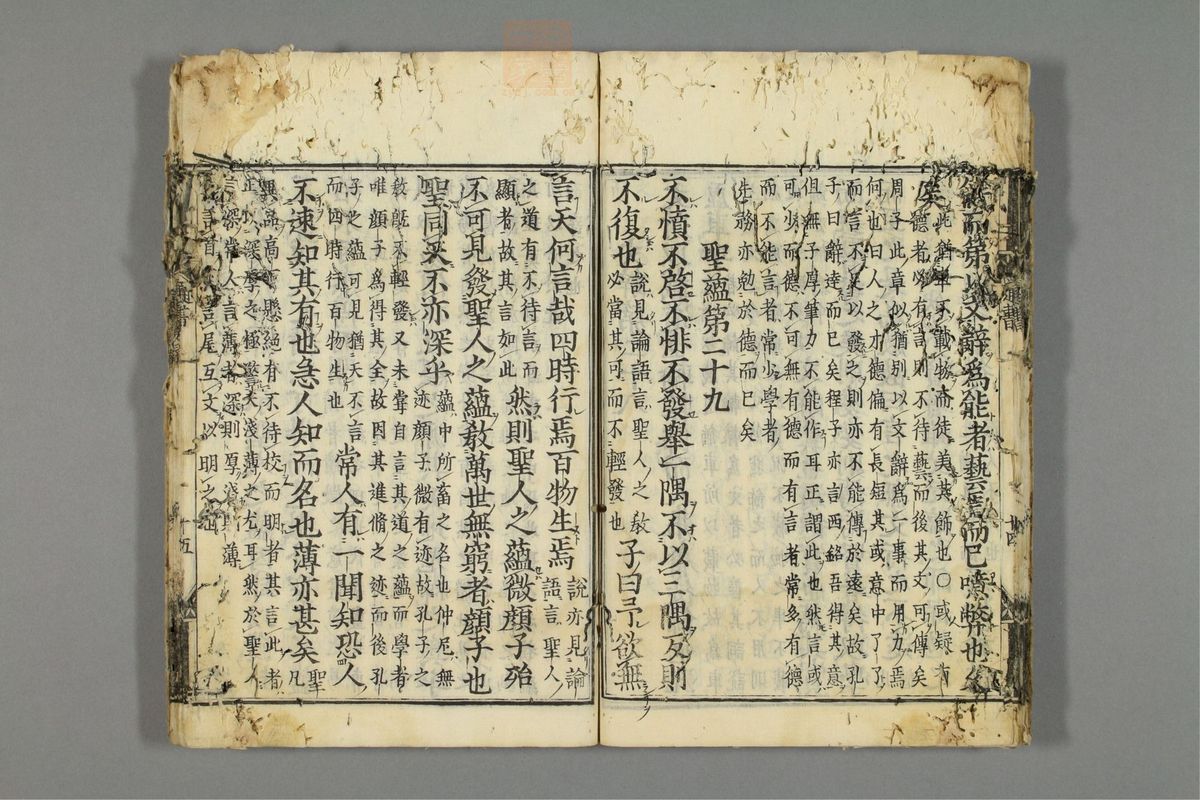 德而第以文辭爲能者藝焉而已噫弊也久
矣
此猶車不載物而徒美其飾也○或疑有
德者必有言則不待藝而後其文可傳矣
周子此章似猶別以文辭爲一事而用力焉
何也曰人之才德偏有長短其或意中了了
而言不足以發之則亦不能傳於遠矣故孔
子曰辭達而已矣程子亦言西銘吾得其意
但無子厚筆力不能作耳正謂此也然言或
可少而德不可無有德而有言者常多有德
而不能言者常少學者
先務亦勉於德而已矣
聖蘊第二十九
不憤不啓不悱不發舉一隅不以三隅反則
不復也
說見論語言聖人之教
必當其可而不輕發也
子曰予欲無
言天何言哉四時行焉百物生焉
說亦見論
語言聖人
之道有不待言而
顯者故其言如此
然則聖人之蘊微顏子殆
不可見發聖人之蘊教萬世無窮者顏子也
聖同天不亦深乎
蘊中所畜之名也仲尼無
迹顏子微有迹故孔子之
教既不輕發又未嘗自言其道之蘊而學者
唯顏子爲得其全故因其進脩之迹而後孔
子之蘊可見猶天不言
而四時行百物生也
常人有一聞知恐人
不速知其有也急人知而名也薄亦甚矣
聖
凡
異品高下懸絕有不待校而明者其言此者
正以深厚之極警夫淺薄之尤耳然於聖人
言深常人言薄者深則厚淺則薄
言首下言尾互文以明之也